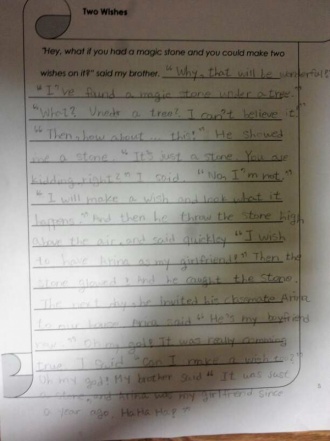 Two Wishes
"Hey, what if you had a magic stone and you could make two
wishes on it?" said my brother. "Why, that will be wonderful!"
"I"ve found a magic stone under a tree."
"What? Vnedr a tree? I can't believe it!
"Then, how about ... this!". He showed
me a stone. "It's just a stone. You are
kidding, right?" I said. "No, I"m not."
"I will make a wish and look what it
happens." And then he throw the stone high
above the air, and said quickley "I wish
to have Anna as my girlfriend!" Then the
stone glowed! And he caught the stone.
The next day, he invited his classmate Anna
to our house. Anna said "He's my boyfriend
now." Oh my gosh! It was really comming
true. I said "Can I make a wish to?"
Oh my god! My brother said "It was just
a stone, and Anna was my girlfriend since
a year ago. Ha Ha Ha!"